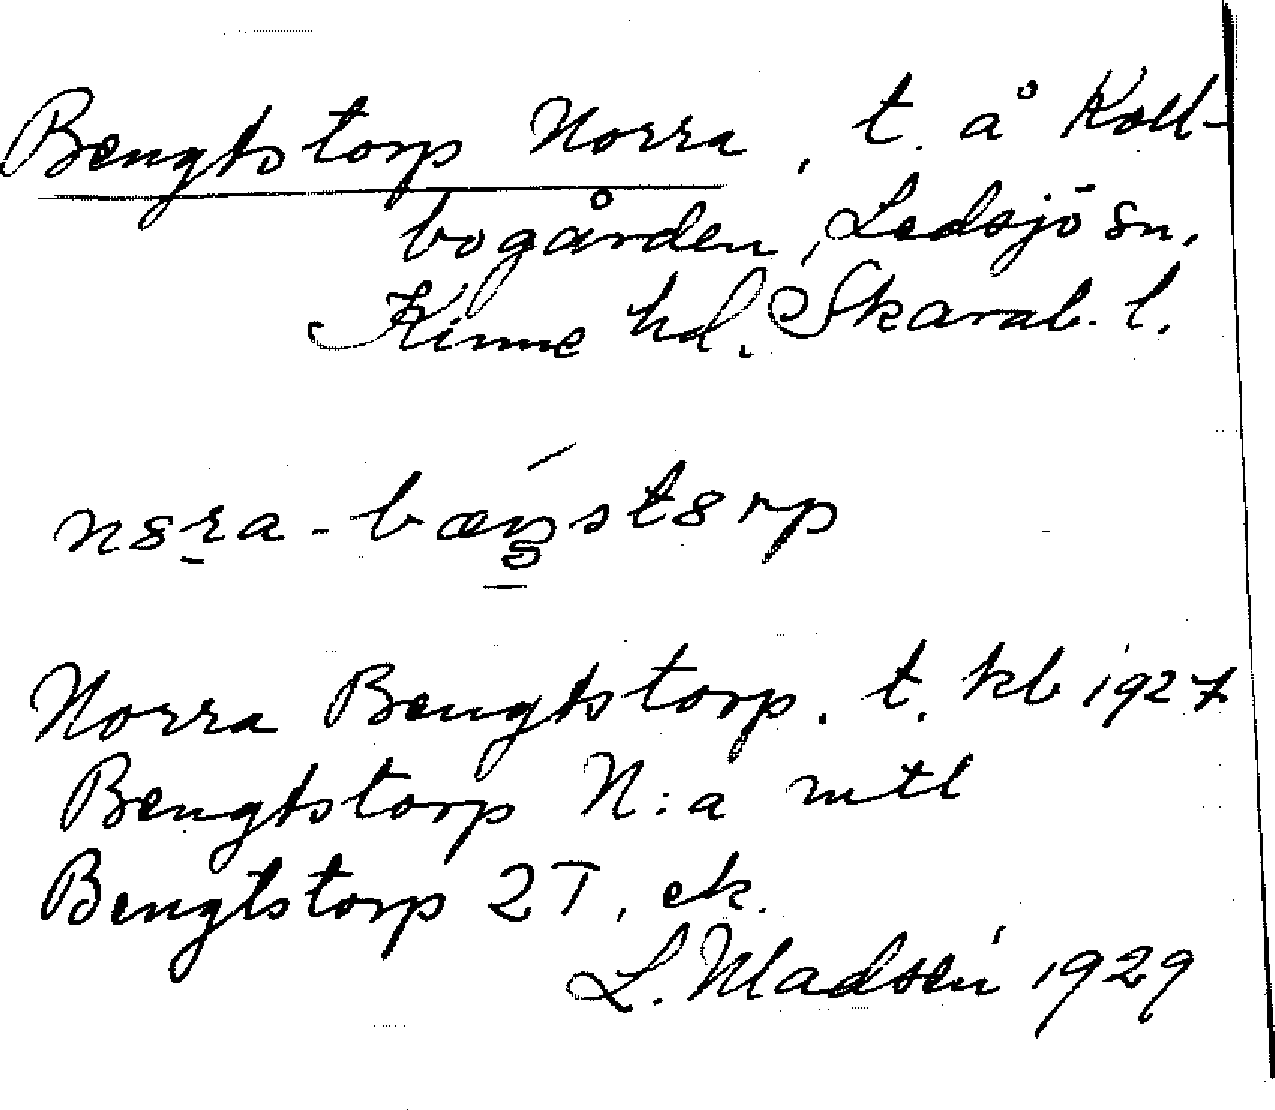 Bengtstorp Norra, t. å Koll-
bogården, Ledsjö sn,
Kinne hd. Skarab. l.
Norra Bengtstorp. t. kb 1927
Bengtstorp N:a mtl
Bengtstorp 2T, ek.
L. Madsén 1929